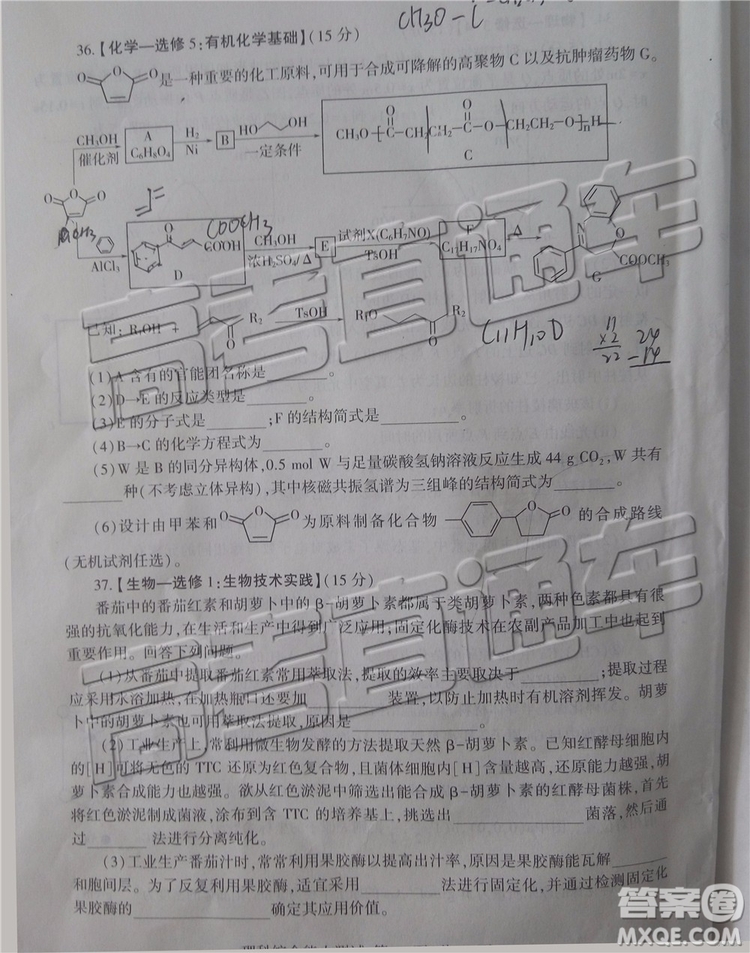 CH3O-C
36.【化学—选修5:有机化学基础】(15分)
是一种重要的化工原料,可用于合成可降解的高聚物C以及抗肿瘤药物G。
CH₃OH 催化剂 A C₆H₈O₄ H₂ Ni B HO OH 一定条件 CH₃O C CH₂CH₂ C O CH₂CH₂ O n H
O O O
C
COOCH3
AlCl₃ COOH D CH₃OH 浓H₂SO₄/Δ E 试剂X(C₆H₇NO) TsOH F C₁₇H₁₇NO₄ Δ N O COOCH₃ G
已知:R₁OH + R₂ O TsOH R₁O R₂ O
C11H10O
11 ×2 22
24 -14
(1)A含有的官能团名称是
。
(2)D→E的反应类型是
。
(3)E的分子式是
;F的结构简式是
。
(4)B→C的化学方程式为
。
(5)W是B的同分异构体,0.5 mol W与足量碳酸氢钠溶液反应生成44 g CO₂,W共有
种(不考虑立体异构),其中核磁共振氢谱为三组峰的结构简式为
。
(6)设计由甲苯和 O O O 为原料制备化合物 O O 的合成路线
(无机试剂任选)。
37.【生物—选修1:生物技术实践】(15分)
番茄中的番茄红素和胡萝卜中的β-胡萝卜素都属于类胡萝卜素,两种色素都具有很
强的抗氧化能力,在生活和生产中得到广泛应用,固定化酶技术在农副产品加工中也起到
重要作用。回答下列问题。
(1)从番茄中提取番茄红素常用萃取法,提取的效率主要取决于
;提取过程
应采用水浴加热,在加热瓶口还要加
装置,以防止加热时有机溶剂挥发。胡萝
卜中的胡萝卜素也可用萃取法提取,原因是
。
(2)工业生产上,常利用微生物发酵的方法提取天然β-胡萝卜素。已知红酵母细胞内
的[H]可将无色的TTC还原为红色复合物,且菌体细胞内[H]含量越高,还原能力也越强,胡
萝卜素的产量也越高。欲从红色淤泥中筛选出能合成β-胡萝卜素的红酵母菌株,首先
将红色淤泥制成菌液,涂布到含TTC的培养基上,挑选出
菌落,然后通
过
法进行分离纯化。
(3)工业生产番茄汁时,常常利用果胶酶以提高出汁率,原因是果胶酶能瓦解
和胞间层。为了反复利用果胶酶,适宜采用
法进行固定化,并通过检测固定化
果胶酶的
确定其应用价值。
答案圈
MXQE.COM
高考直通车
高考直通车
高考直通车